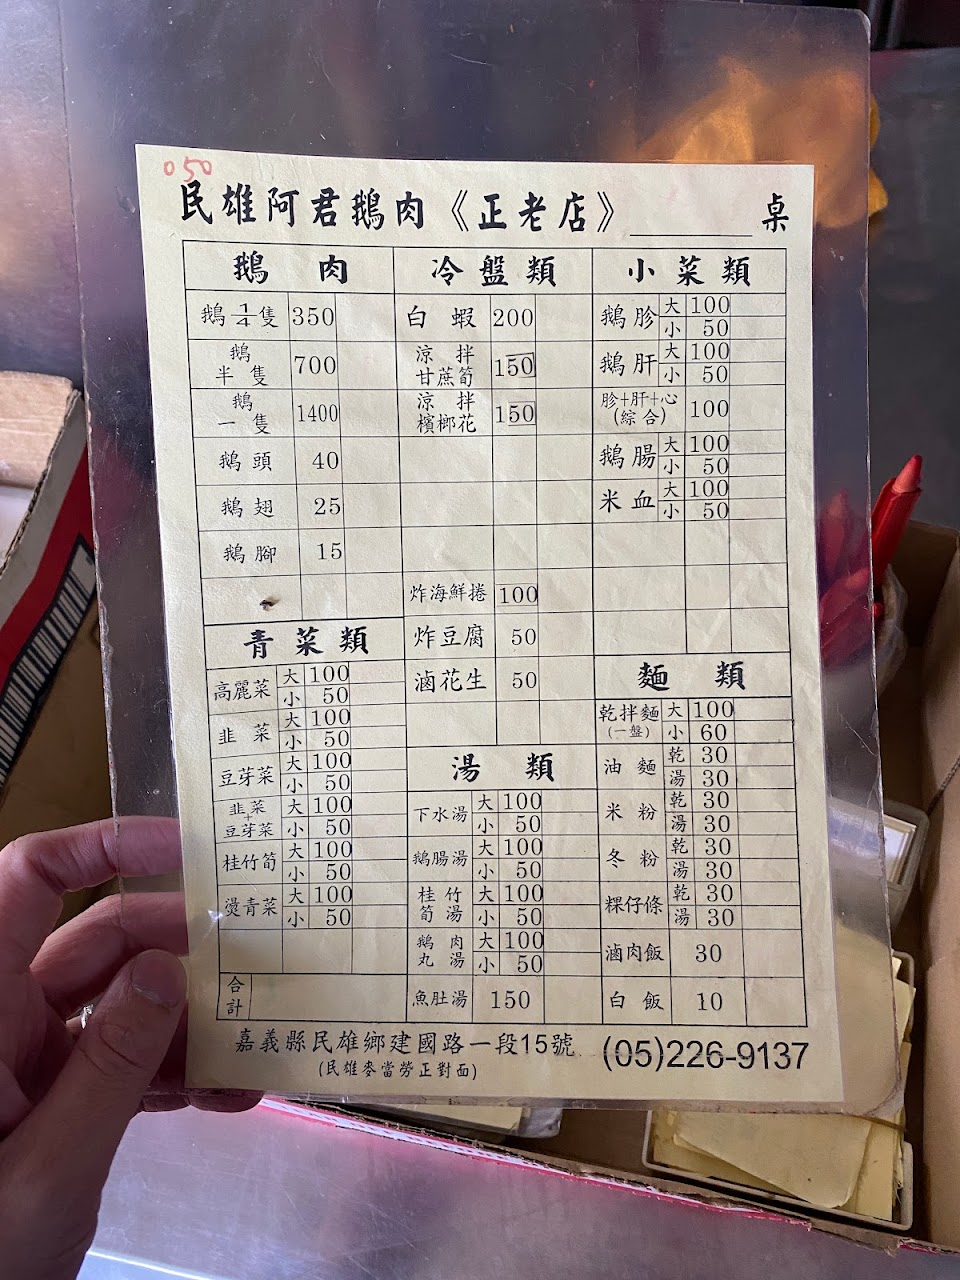 050
民雄阿君鵝肉《正老店》 桌
鵝 肉
鵝1/4隻 350
鵝半隻 700
鵝一隻 1400
鵝頭 40
鵝翅 25
鵝腳 15
青菜類
高麗菜 大 100 小 50
韭菜 大 100 小 50
豆芽菜 大 100 小 50
韭菜+豆芽菜 大 100 小 50
桂竹筍 大 100 小 50
燙青菜 大 100 小 50
合計
冷盤類
白蝦 200
涼拌甘蔗筍 150
涼拌檳榔花 150
炸海鮮捲 100
炸豆腐 50
滷花生 50
湯類
下水湯 大 100 小 50
鵝腸湯 大 100 小 50
桂竹筍湯 大 100 小 50
鵝肉丸湯 大 100 小 50
魚肚湯 150
小菜類
鵝胗 大 100 小 50
鵝肝 大 100 小 50
胗+肝+心(綜合) 100
鵝腸 大 100 小 50
米血 大 100 小 50
麵類
乾拌麵(一盤) 大 100 小 60
油麵 乾 30 湯 30
米粉 乾 30 湯 30
冬粉 乾 30 湯 30
粿仔條 乾 30 湯 30
滷肉飯 30
白飯 10
嘉義縣民雄鄉建國路一段15號 (05)226-9137
(民雄麥當勞正對面)